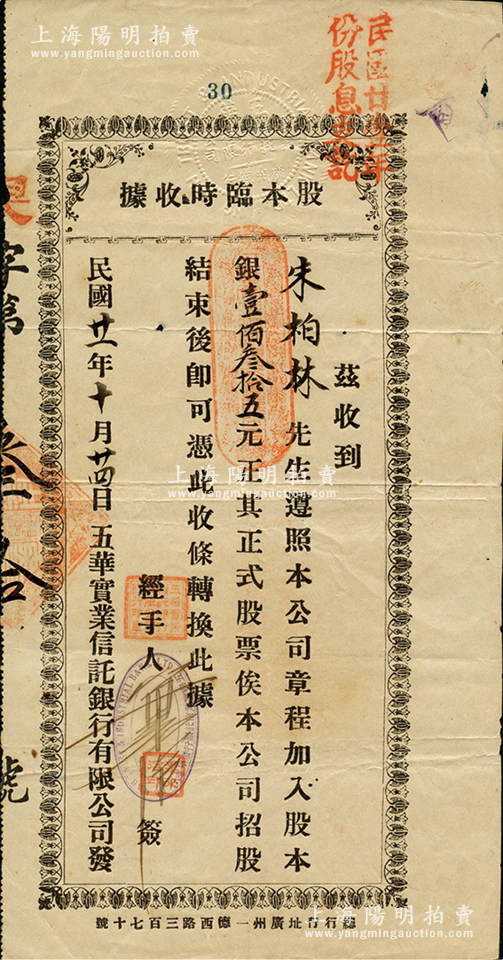 上海陽明拍賣
www.yangmingauction.com
上海陽明拍賣
www.yangmingauction.com
30
民國廿年
份股息
股本臨時收據
茲收到
朱柏林先生遵照本公司章程加入股本
銀壹佰叁拾五元正其正式股票俟本公司招股
結束後卽可憑此收條轉換此據
經手人
簽
民國廿一年十月廿四日五華實業信託銀行有限公司發
字第叁拾號
總行行址廣州一德西路三百七十號
上海陽明拍賣
www.yangmingauction.com
上海陽明拍賣
www.yangmingauction.com